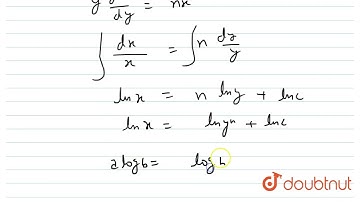 y /dy = nx
∫ dx/x = ∫ n dy/y
ln x = n ln y + ln c
ln x = ln yⁿ + ln c
a log b = log b
doubtnut